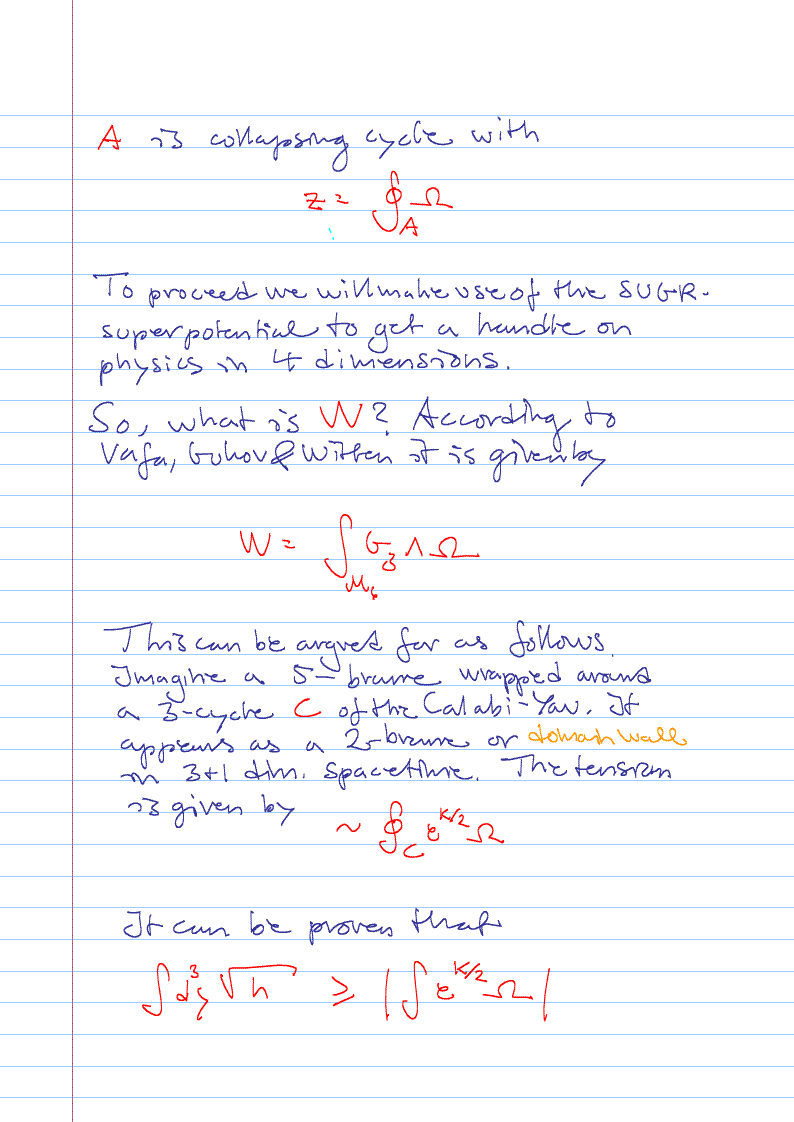 A is collapsing cycle with
z = ∮_A Ω
To proceed we will make use of the SUGR-
superpotential to get a handle on
physics in 4 dimensions.
So, what is W? According to
Vafa, Gukov & Witten it is given by
W = ∫_{M_6} G_3 ∧ Ω
This can be argued for as follows.
Imagine a 5-brane wrapped around
a 3-cycle C of the Calabi-Yau. It
appears as a 2-brane or domain wall
in 3+1 dim. spacetime. The tension
is given by
~ ∮_C e^{K/2} Ω
It can be proven that
∫ d^3ξ √h ≥ | ∫ e^{K/2} Ω |